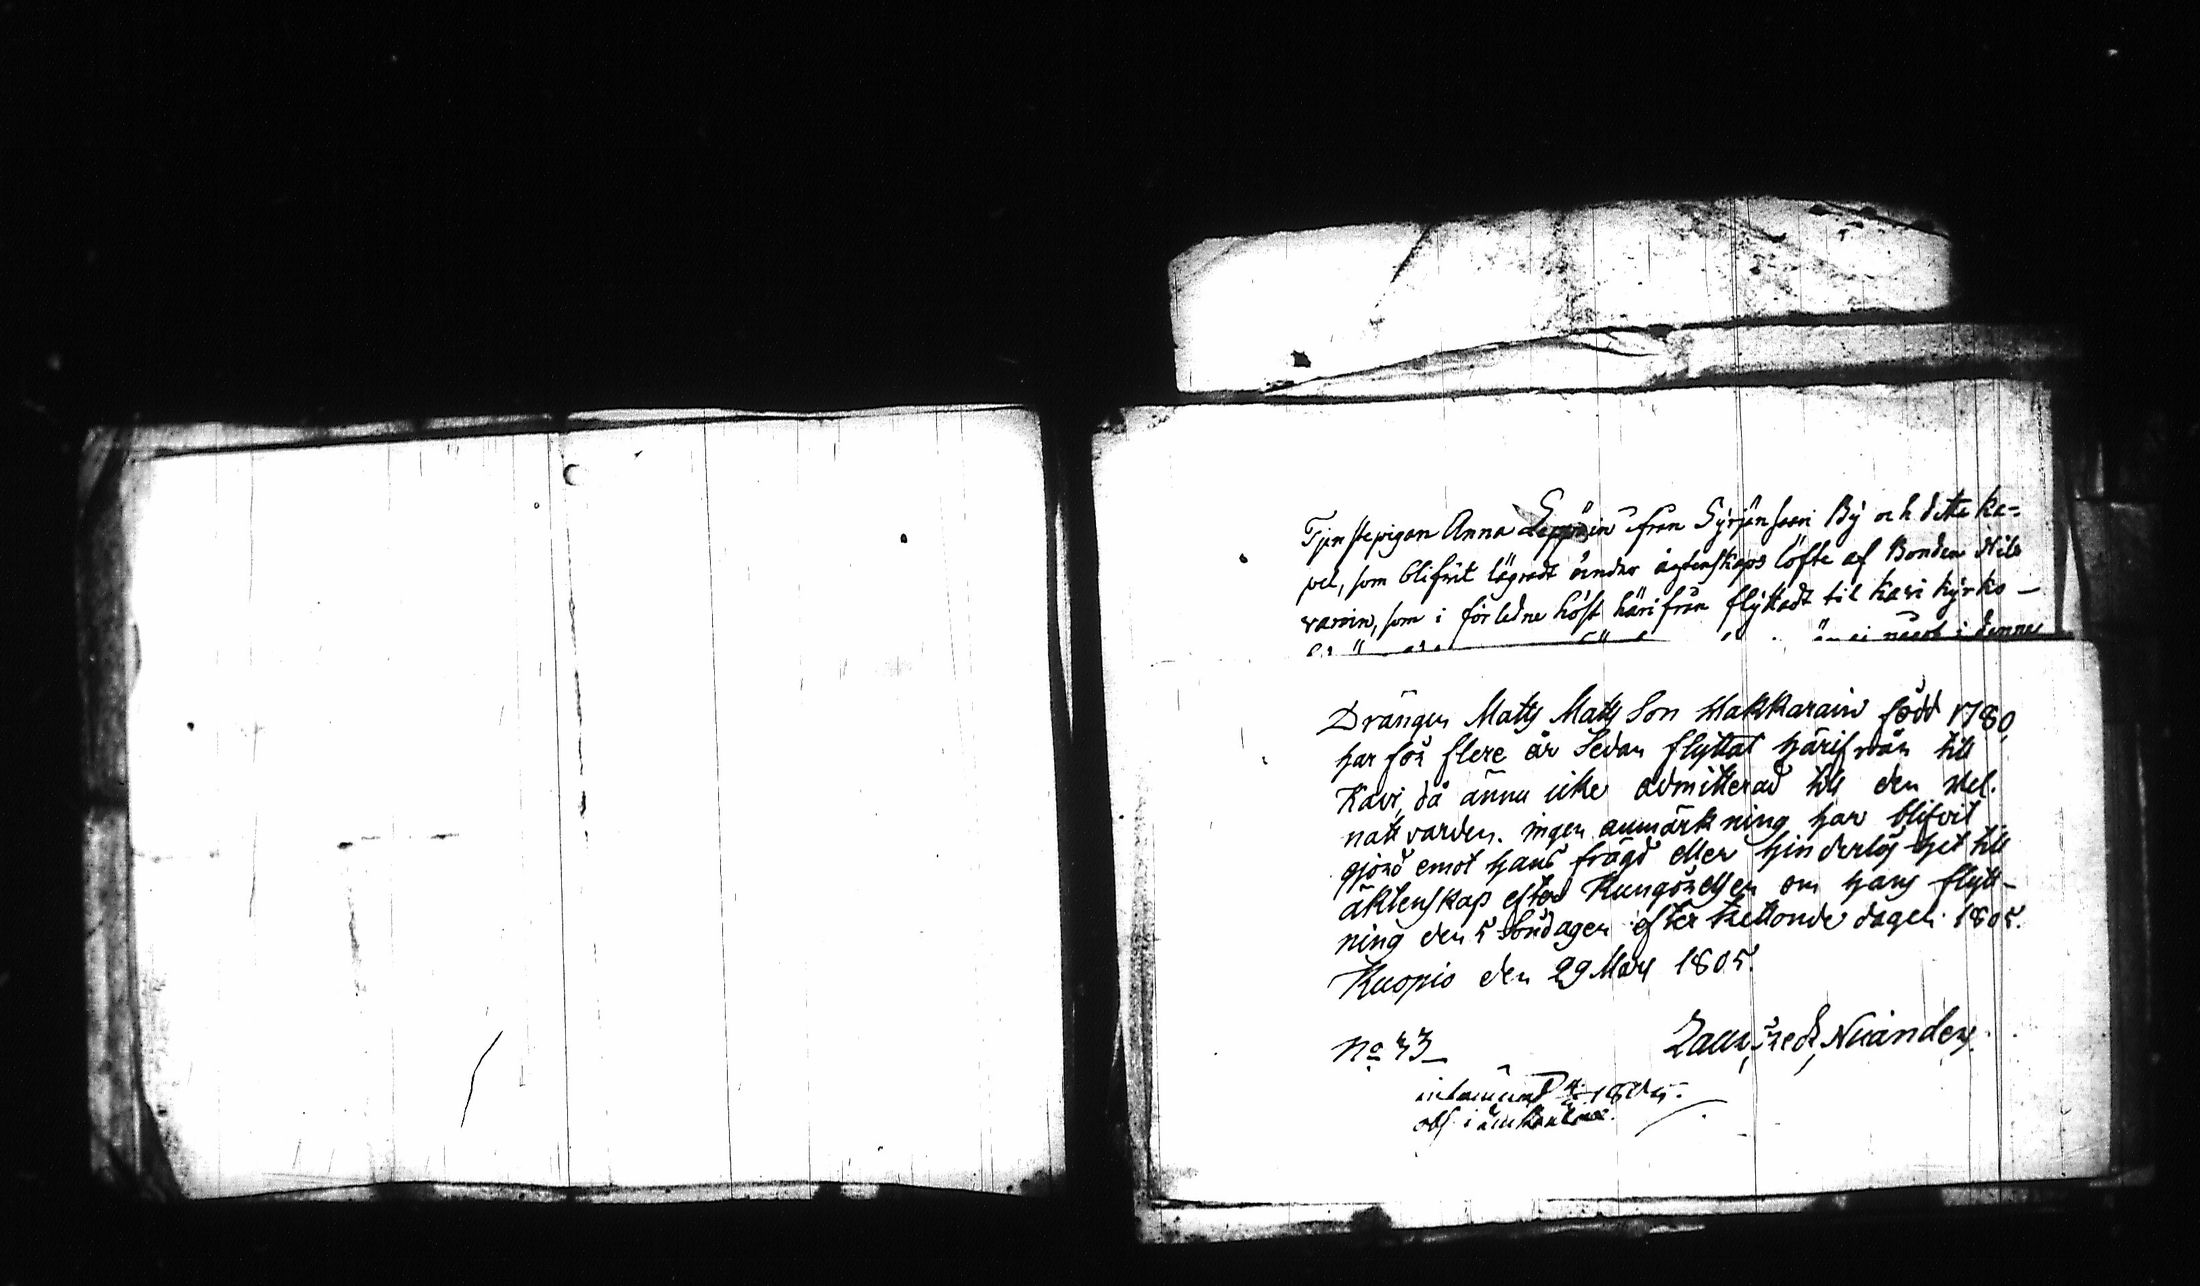 Tjenstepigan Anna Leppäin från Syrjänsaari By och detta ka=
pel, som blifvit lägradt under ägtenskaps löfte af Bonden Nils
varoin, som i förledne höst härifrån flyttadt til Kavi kyrko —
är ej något i denne
Drängen Matts Matts Son Hakkarain född 1780
har för flere år sedan flyttat härifrån till
Kavi, då ännu icke admitterad till den Hel.
nattvarden. ingen anmärkning har blifvit
gjord emot hans frägd eller hinderlöshet till
äktenskap efter Kungörelsen om hans flytt-
ning den 5 Söndagen efter trettonde dagen 1805.
Kuopio den 29 Mars 1805.
No 33 Zachr. Fredr. Nicander
1805.